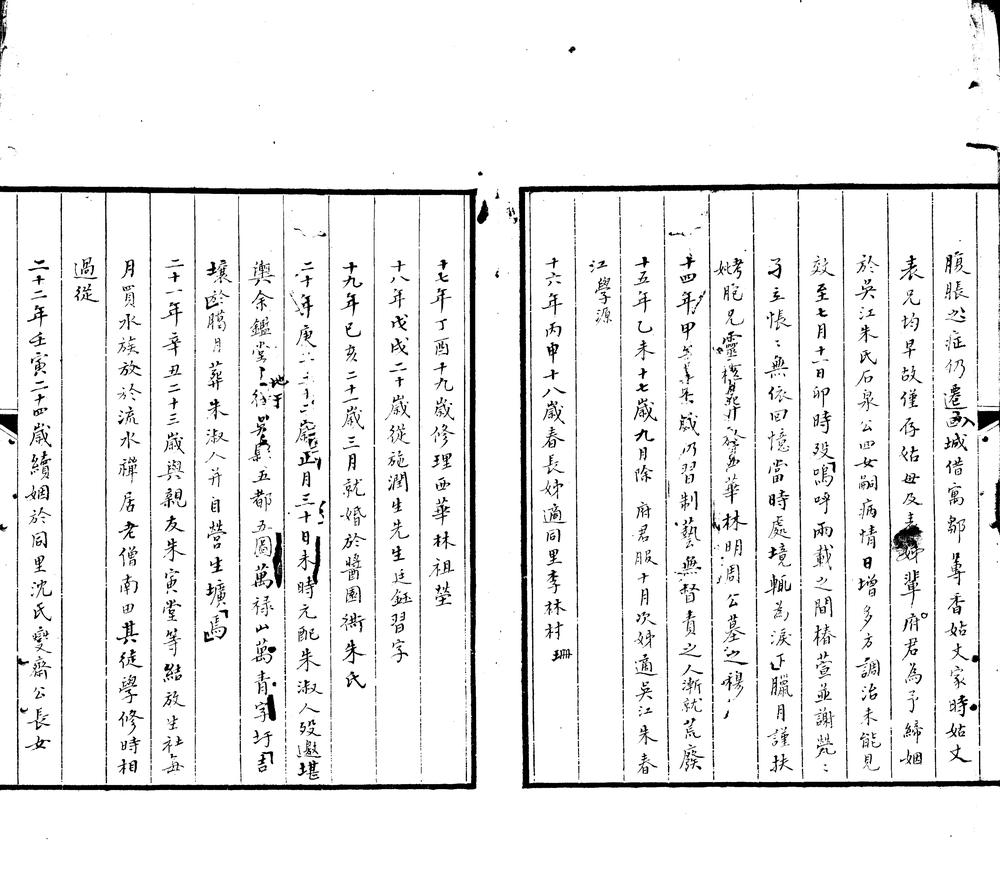 腹脹之症仍遷入城借寓鄒蓴香姑丈家時姑丈
表兄均早故僅存姑母及表姊輩府君為予締姻
於吳江朱氏石泉公四女嗣病情日增多方調治未能見
效至七月十一日卯時歿嗚呼兩載之間椿萱並謝煢〻
孑立悵〻無依回憶當時處境輒為淚下臘月謹扶
考妣胞兄靈櫬葬華林明周公墓之穆
十四年甲午歲仍習制藝無督責之人漸就荒廢
十五年乙未十七歲九月除 府君服十月次姊適吳江朱春
江學源
十六年丙申十八歲春長姊適同里李林村
十七年丁酉十九歲修理西華林祖塋
十八年戊戌二十歲從施潤生先生廷鈺習字
十九年己亥二十一歲三月就婚於醬園衖朱氏
二十年庚子二十二歲正月三十日未時元配朱淑人歿邀堪
輿余鑑堂 地于 五都五圖萬祿山萬青字圩吉
壤於臘月葬朱淑人并自營生壙焉
二十一年辛丑二十三歲與親友朱寅堂等結放生社每
月買水族放於流水禪居老僧南田其徒學修時相
過從
二十二年壬寅二十四歲續姻於同里沈氏變齋公長女